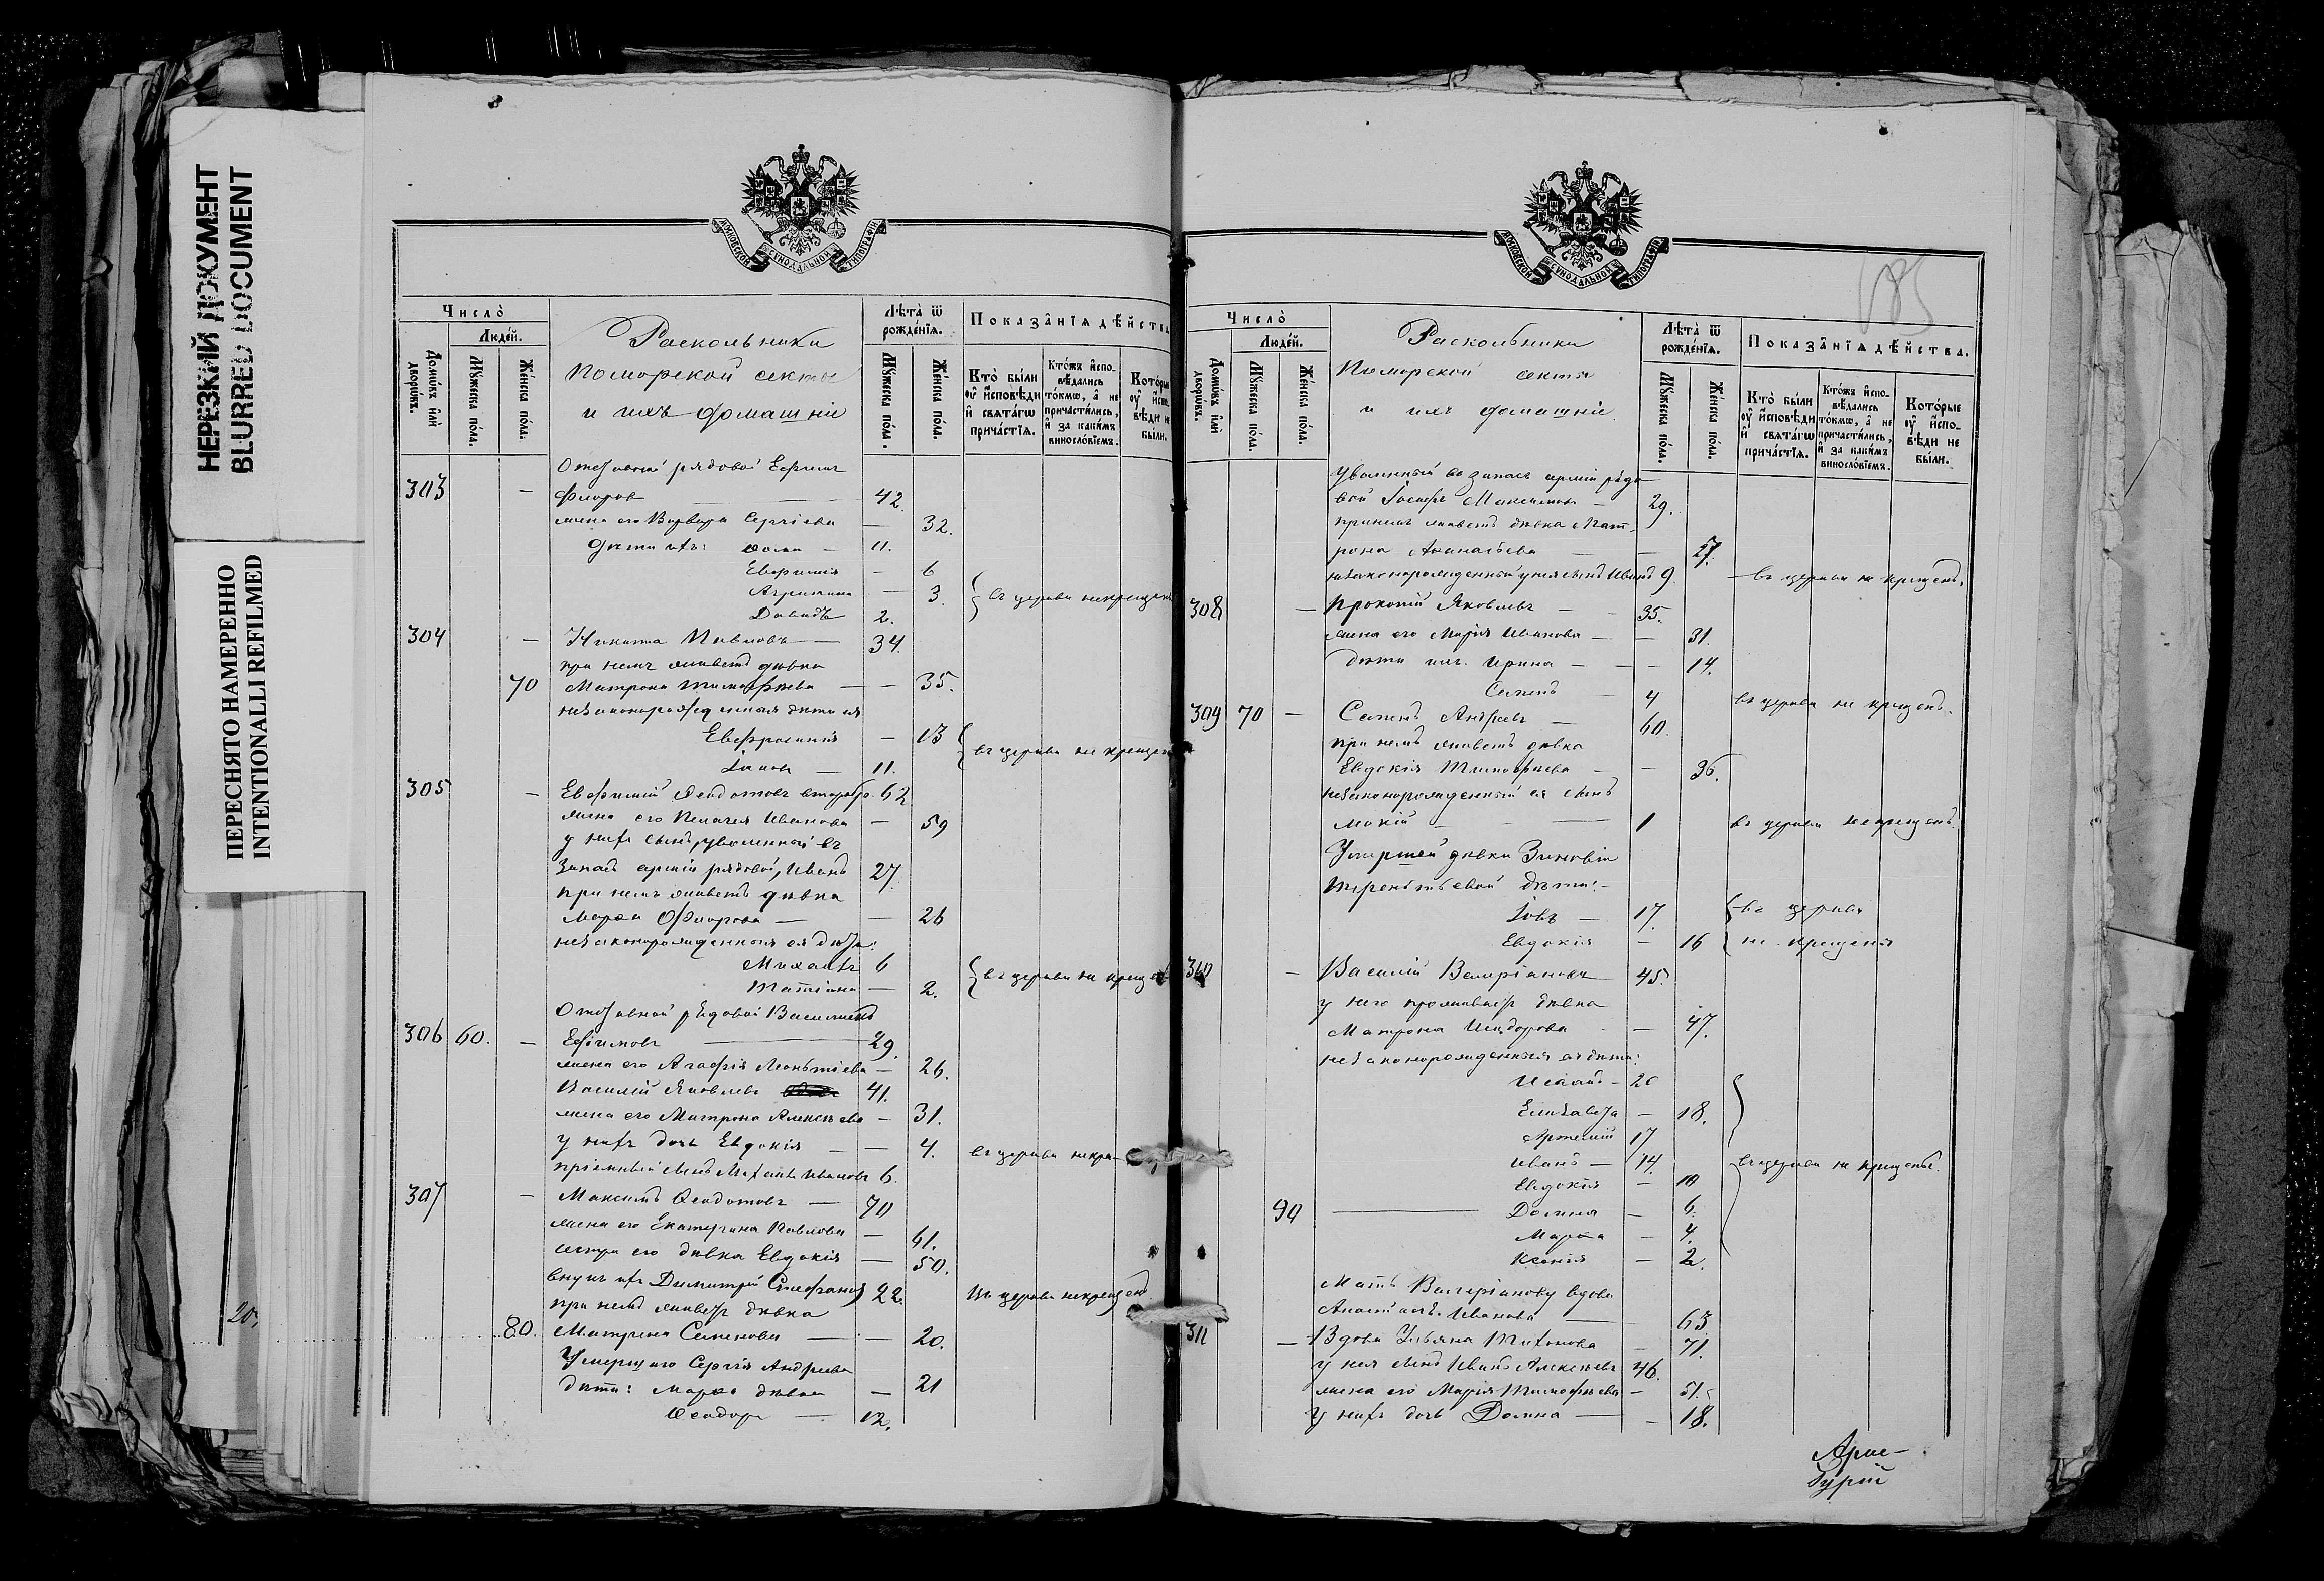 НЕРЕЗКИЙ ДОКУМЕНТ
BLURRED DOCUMENT
ПЕРЕСНЯТО НАМЕРЕННО
INTENTIONALLI REFILMED
20.
МОСКОВСКОЙ СѴНОДАЛЬНОЙ ТИПОГРАФІИ
Число̀
Людей.
Домѡвъ и҆лѝ дворѡвъ.
Мꙋжеска по́ла.
Же́нска по́ла.
Раскольники
поморской секты
и ихъ домашніе
Лѣта̀ ѿ рожде́нїѧ.
Мꙋжеска по́ла.
Же́нска по́ла.
Показа̑нїѧ дѣ́йства
Кто̀ бы́ли оу҆ и҆сповѣди и҆ свѧта́гѡ прича́стїѧ.
Кто́жъ и҆спо-вѣдались то́кмѡ, а҆ не причасти́лись, и҆ за каки́мъ винословїемъ.
Кото́рые оу҆ и҆спо-вѣди не бы́ли.
Отставной рядовой Ефимъ
303 — Флоровъ — 42
жена его Варвара Сергіева — 32.
Дѣти ихъ: Ѳома — 11.
Евфимія — 6
Агрипина — 3. въ церкви некрещены
Давидъ 2.
304 — Никита Павловъ — 34.
при немъ живетъ дѣвка
70 Матрона Тимофѣева — 35.
незаконорожденныя дѣти ея
Евфросинія — 13 въ церкви не крещены
Іаковъ — 11.
305 — Евфимій Ѳеодотовъ второбр. 62
жена его Пелагея Иванова — 59
у нихъ сынъ, уволенный въ
запасъ арміи рядовой, Иванъ 27.
при немъ живетъ дѣвка
Марѳа Флорова — 26
незаконорожденныя ея дѣти:
Михаилъ 6
Татіана — 2. въ церкви не крещены
Отставной рядовой Василій
306 60. — Ефимовъ — 29.
жена его Агафія Леонтіева — 26.
Василій Яковлевъ 41.
жена его Матрона Алексѣева — 31.
у нихъ дочь Евдокія — 4. въ церкви некре-
пріемный сынъ Михаилъ Ивановъ 6.
307 — Максимъ Ѳеодотовъ — 70
жена его Екатерина Павлова — 61.
сестра его дѣвка Евдокія — 50.
внукъ ихъ Димитрій Стефановъ 22. въ церкви некрещенъ.
при немъ живетъ дѣвка
80. Матрона Семенова — 20.
Умершаго Сергія Андреева
дѣти: Марѳа дѣвка — 21
Ѳеодоръ — 12.
185
МОСКОВСКОЙ СѴНОДАЛЬНОЙ ТИПОГРАФІИ
Число̀
Людей.
Домѡвъ и҆лѝ дворѡвъ.
Мꙋжеска по́ла.
Же́нска по́ла.
Раскольники
Поморской секты
и ихъ домашніе.
Лѣта̀ ѿ рожде́нїѧ.
Мꙋжеска по́ла.
Же́нска по́ла.
Показа̑нїѧ дѣ́йства.
Кто̀ бы́ли оу҆ и҆сповѣди и҆ свѧта́гѡ прича́стїѧ.
Кто́жъ и҆спо-вѣдались то́кмѡ, а҆ не причасти́лись, и҆ за каки́мъ винословїемъ.
Кото́рые оу҆ и҆спо-вѣди не бы́ли.
Уволенный въ запасъ арміи рядо
вой Іосифъ Максимовъ — 29.
при немъ живетъ дѣвка Мат-
рона Ананьева — 27.
незаконорожденный у нея сынъ Иванъ 9. въ церкви не крещенъ.
308 — Прокопій Яковлевъ — 35.
жена его Марія Иванова — 31.
дѣти ихъ: Ирина — 14.
Семенъ — 4 въ церкви не крещенъ.
309 70 — Семенъ Андреевъ — 60.
при немъ живетъ дѣвка
Евдокія Тимофѣева — 36.
незаконорожденный ея сынъ
Мокій — 1 въ церкви не крещенъ.
Умершей дѣвки Зиновіи
Терентьевой дѣти:
Іовъ — 17. въ церкви
Евдокія — 16 не крещены
310 — Василій Валеріановъ 45.
у него проживаетъ дѣвка
Матрона Исидорова — 47.
незаконорожденныя ея дѣти:
Исаай — 20
Елизавета — 18.
Артемій 17
Иванъ — 14. въ церкви не крещены.
Евдокія — 10
90 — Домна — 6.
Марѳа — 4.
Ксенія — 2.
Мать Валеріанову вдова
Анастасія Иванова — 63.
311 — Вдова Ульяна Тихонова — 71.
у нея сынъ Иванъ Алексѣевъ 46.
жена его Марія Тимофѣева — 51.
у нихъ дочь Домна — 18.